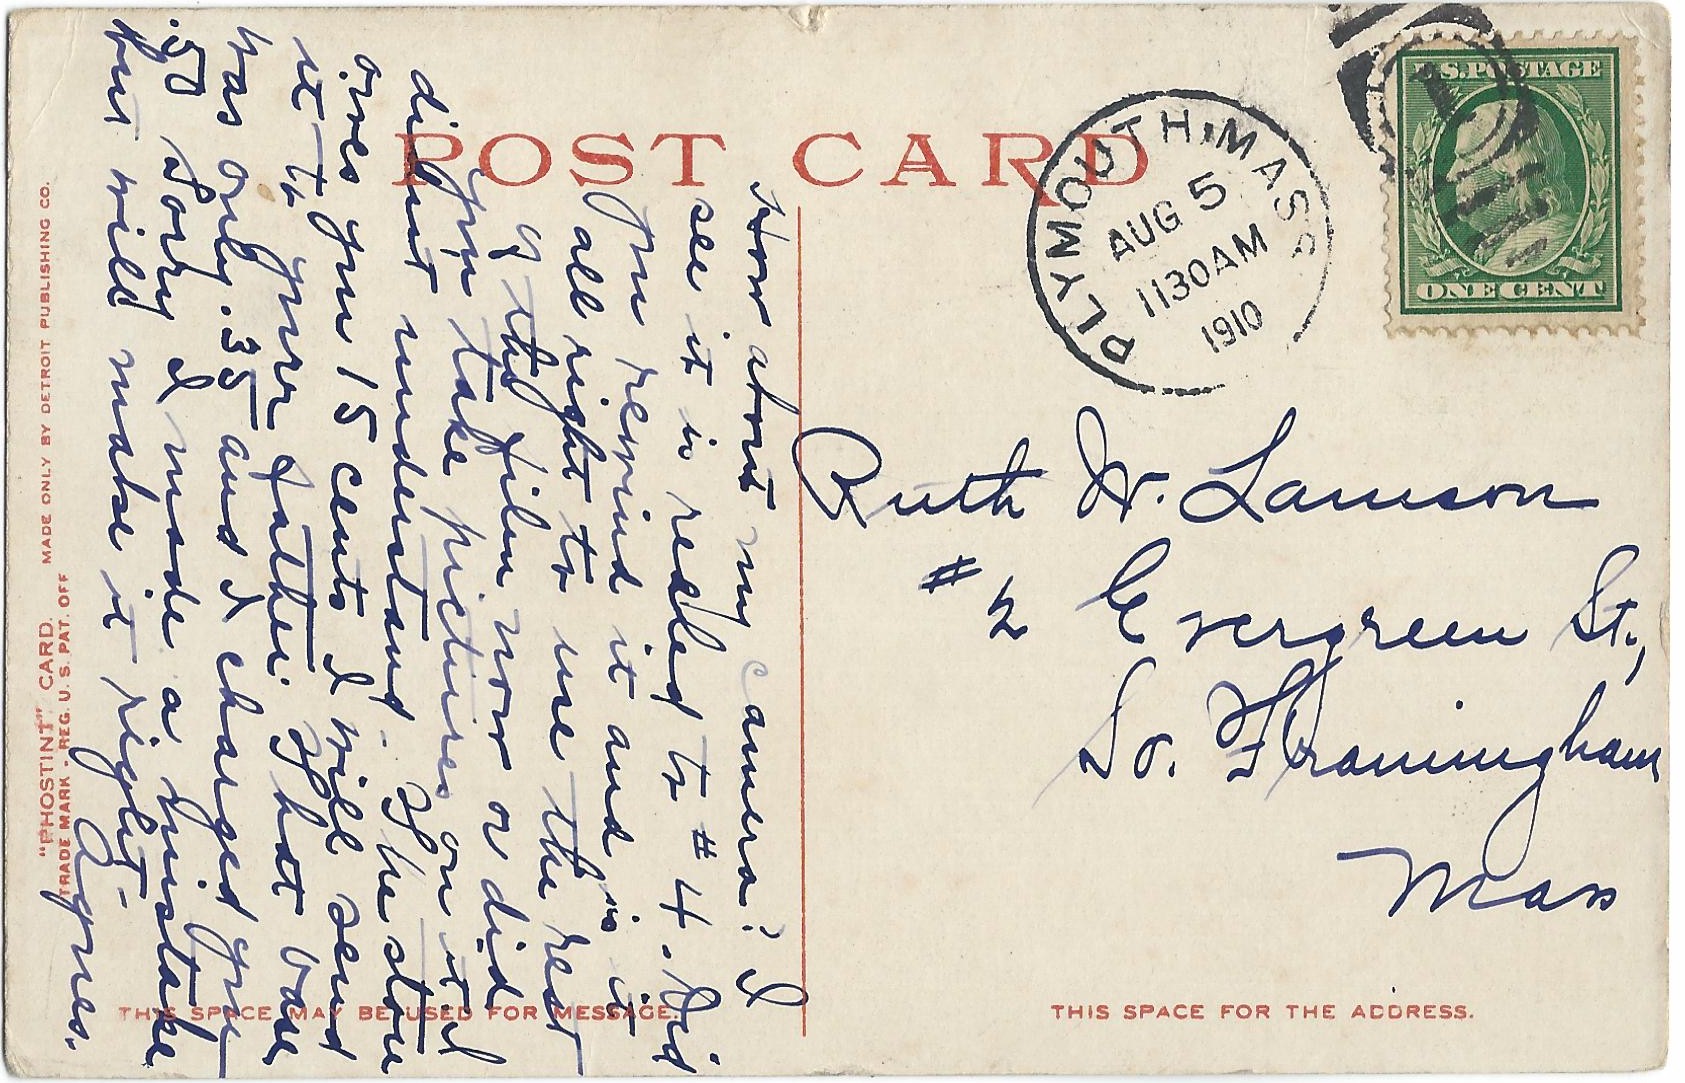 POST CARD
PLYMOUTH, MASS
AUG 5
1130AM
1910
U.S. POSTAGE
1
ONE CENT
How about my camera? I
see it is reeled to #4. Did
you rewind it and is it
all right to use the rest
of the film now or did
you take pictures on it I
did not understand. The store
owes you 15 cents I will send
it to your father. That vase
was only .35 and I charged you
.50 Sorry I made a mistake
but will make it right-
Agnes.
Ruth W. Lamson
#2 Evergreen St.,
So. Framingham
Mass
THIS SPACE MAY BE USED FOR MESSAGE.
THIS SPACE FOR THE ADDRESS.
"PHOSTINT" CARD. MADE ONLY BY DETROIT PUBLISHING CO.
TRADE MARK - REG. U. S. PAT. OFF